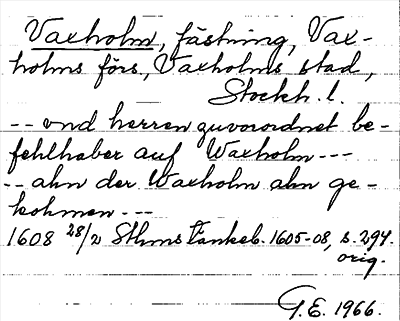 Vaxholm, fästning, Vax-
holms förs, Vaxholms stad,
Stockh. l.
-- vnd herren zuvorordnet be-
fehlhaber auf Waxholm ---
-- ahn der Waxholm ahn ge-
kohmen ---
1608 28/2 Sthms Tänkeb. 1605-08, s. 294.
orig.
G.E. 1966.